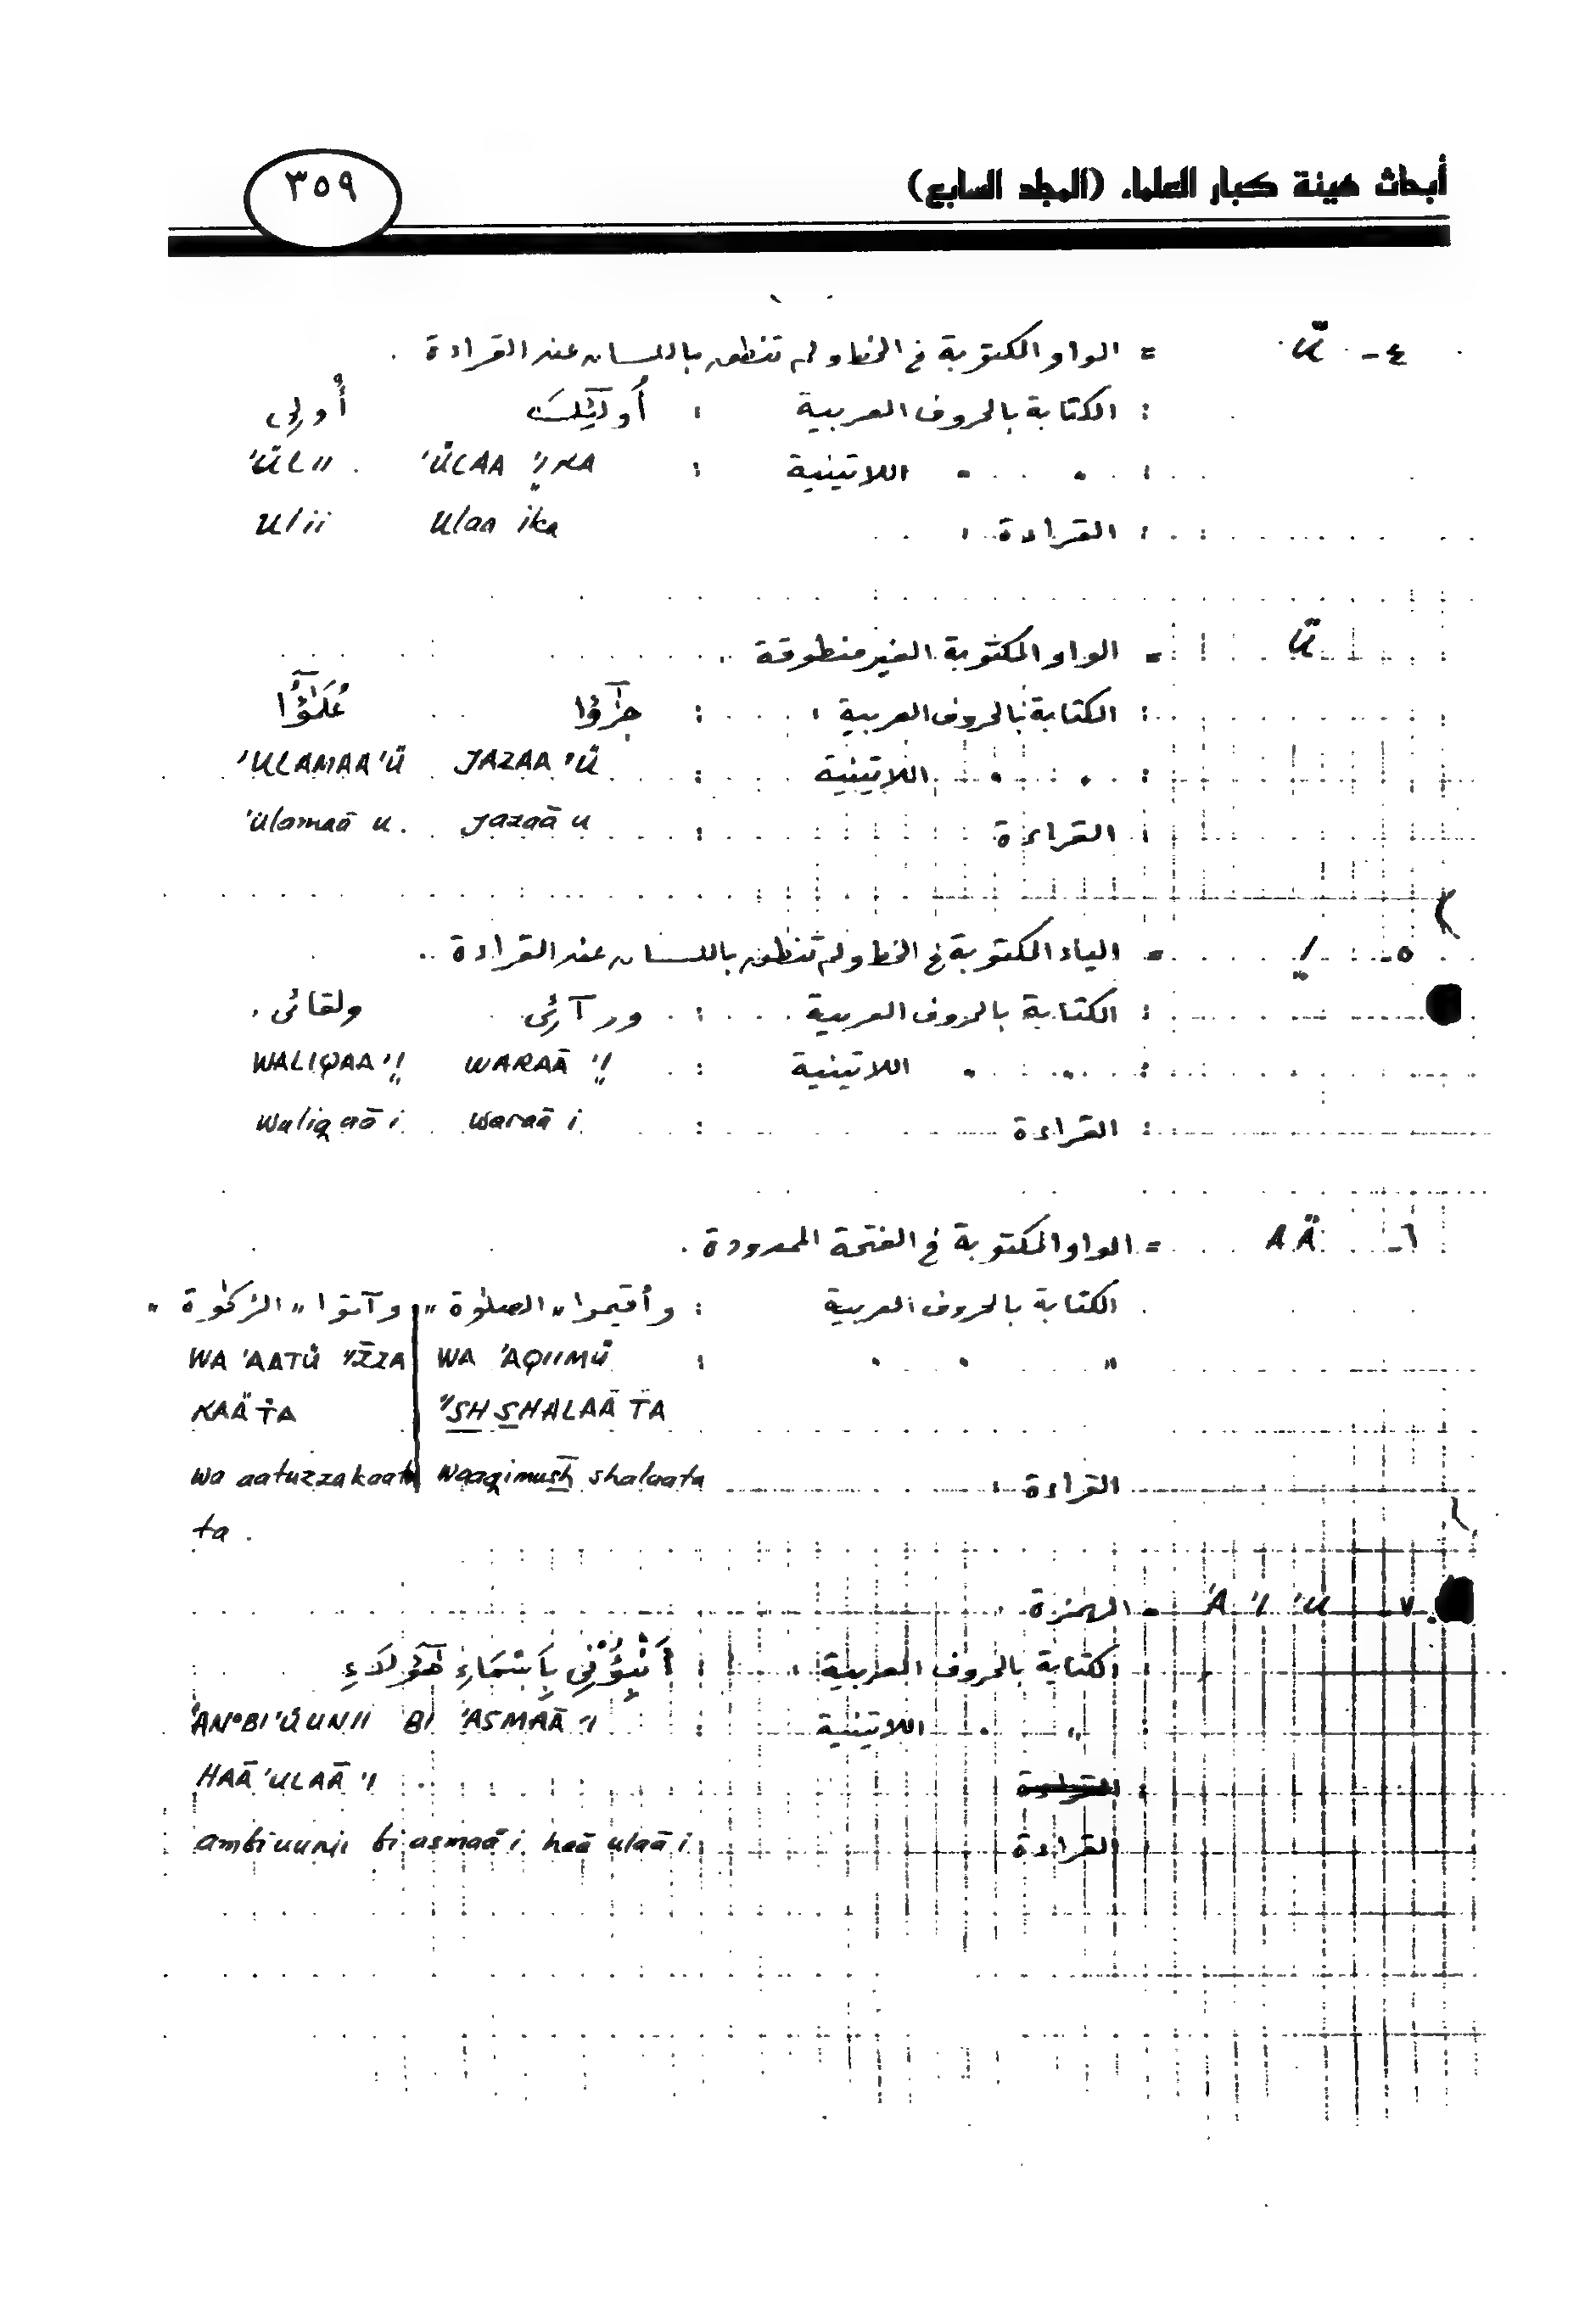 أبحاث هيئة كبار العلماء (المجلد السابع)
٣٥٩
٤ - Ü = الواو المكتوبة في الخط ولم تنطق باللسان عند القراءة .
الكتابة بالحروف العربية : أُولَٰٓئِكَ أُولِى
" " اللاتينية : 'ÜLAA 'IKA 'ÜLII
القراءة : Ulaa ika Ulii
Ü = الواو المكتوبة الغير منطوقة .
الكتابة بالحروف العربية : جزٰٓؤا عُلَمَٰٓؤُا
" " اللاتينية : JAZAA 'Ü 'ULAMAA'Ü
القراءة : Jazaā u 'ulamaā u.
٥ - I = الياء المكتوبة في الخط ولم تنطق باللسان عند القراءة .
الكتابة بالحروف العربية : ورآئى ولقائى .
" " اللاتينية : WARAĀ 'I WALIQAA'I
القراءة : waraā i waliqaā i
٦ - AÄ = الواو المكتوبة في الفتحة الممدودة .
الكتابة بالحروف العربية : وأقيموا " الصلوٰة " وآتوا " الزكوٰة "
" " " : WA 'AQIIMÜ WA 'AATÜ "ZZA
"SH SHALAÄ TA KAÄTA
القراءة : waaqimush shalaata wa aatuzzakaata
ta .
٧ - 'A 'I 'U = الهمزة
الكتابة بالحروف العربية : أَنْبِؤُنِى بِأَسْمَاءِ هَٰٓؤُلَاءِ
" " اللاتينية : 'AN°BI'ÜUNII BI 'ASMAĀ 'I
القراءة HAĀ 'ULAĀ 'I
القراءة ambiuunii bi asmaā i haā ulaā i